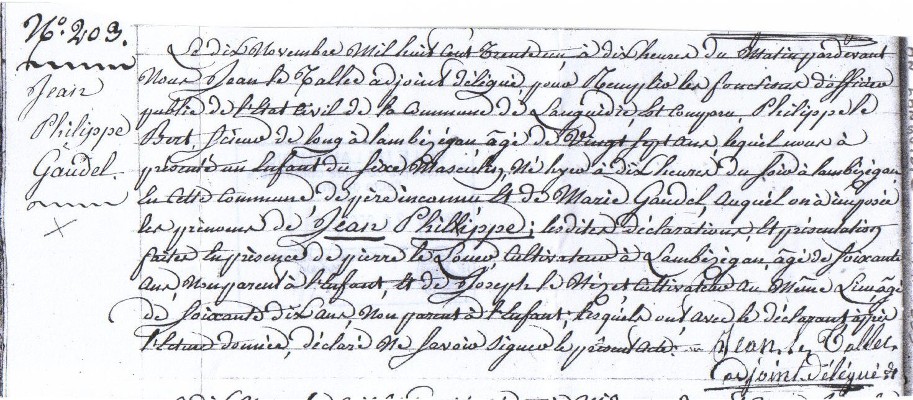 N.º 203.
Jean
Philippe
Gaudel.
Le dix Novembre Mil huit Cent Trente un à dix heures du Matin pardevant
Nous Jean le Tallec adjoint délégué, pour Remplir les fonctions d'officier
public de l'Etat Civil de la Commune de Languidic Est Comparu Philippe le
Bort, de long à lambézégan âgé de Vingt Sept ans lequel nous à
présenté un Enfant du Sexe Masculin, Né hyer à dix heures du Soir à lambézégan
En Cette Commune de père inconnu Et de Marie Gaudel Auquel on à imposé
les prénoms de Jean Philippe; lesdites déclarations, Et présentation
faites En présence de pierre le Cultivateur à Lambézégan, âgé de Soixante
Ans, Non parent à l'Enfant, Et de Joseph le Cultivateur Au Même Lieu âgé
de Soixante dix Ans, Non parent à l'Enfant, lesquels ont avec le déclarant après
lecture donnée, déclaré Ne Savoir Signer le présent acte. Jean le Tallec
adjoint délégué